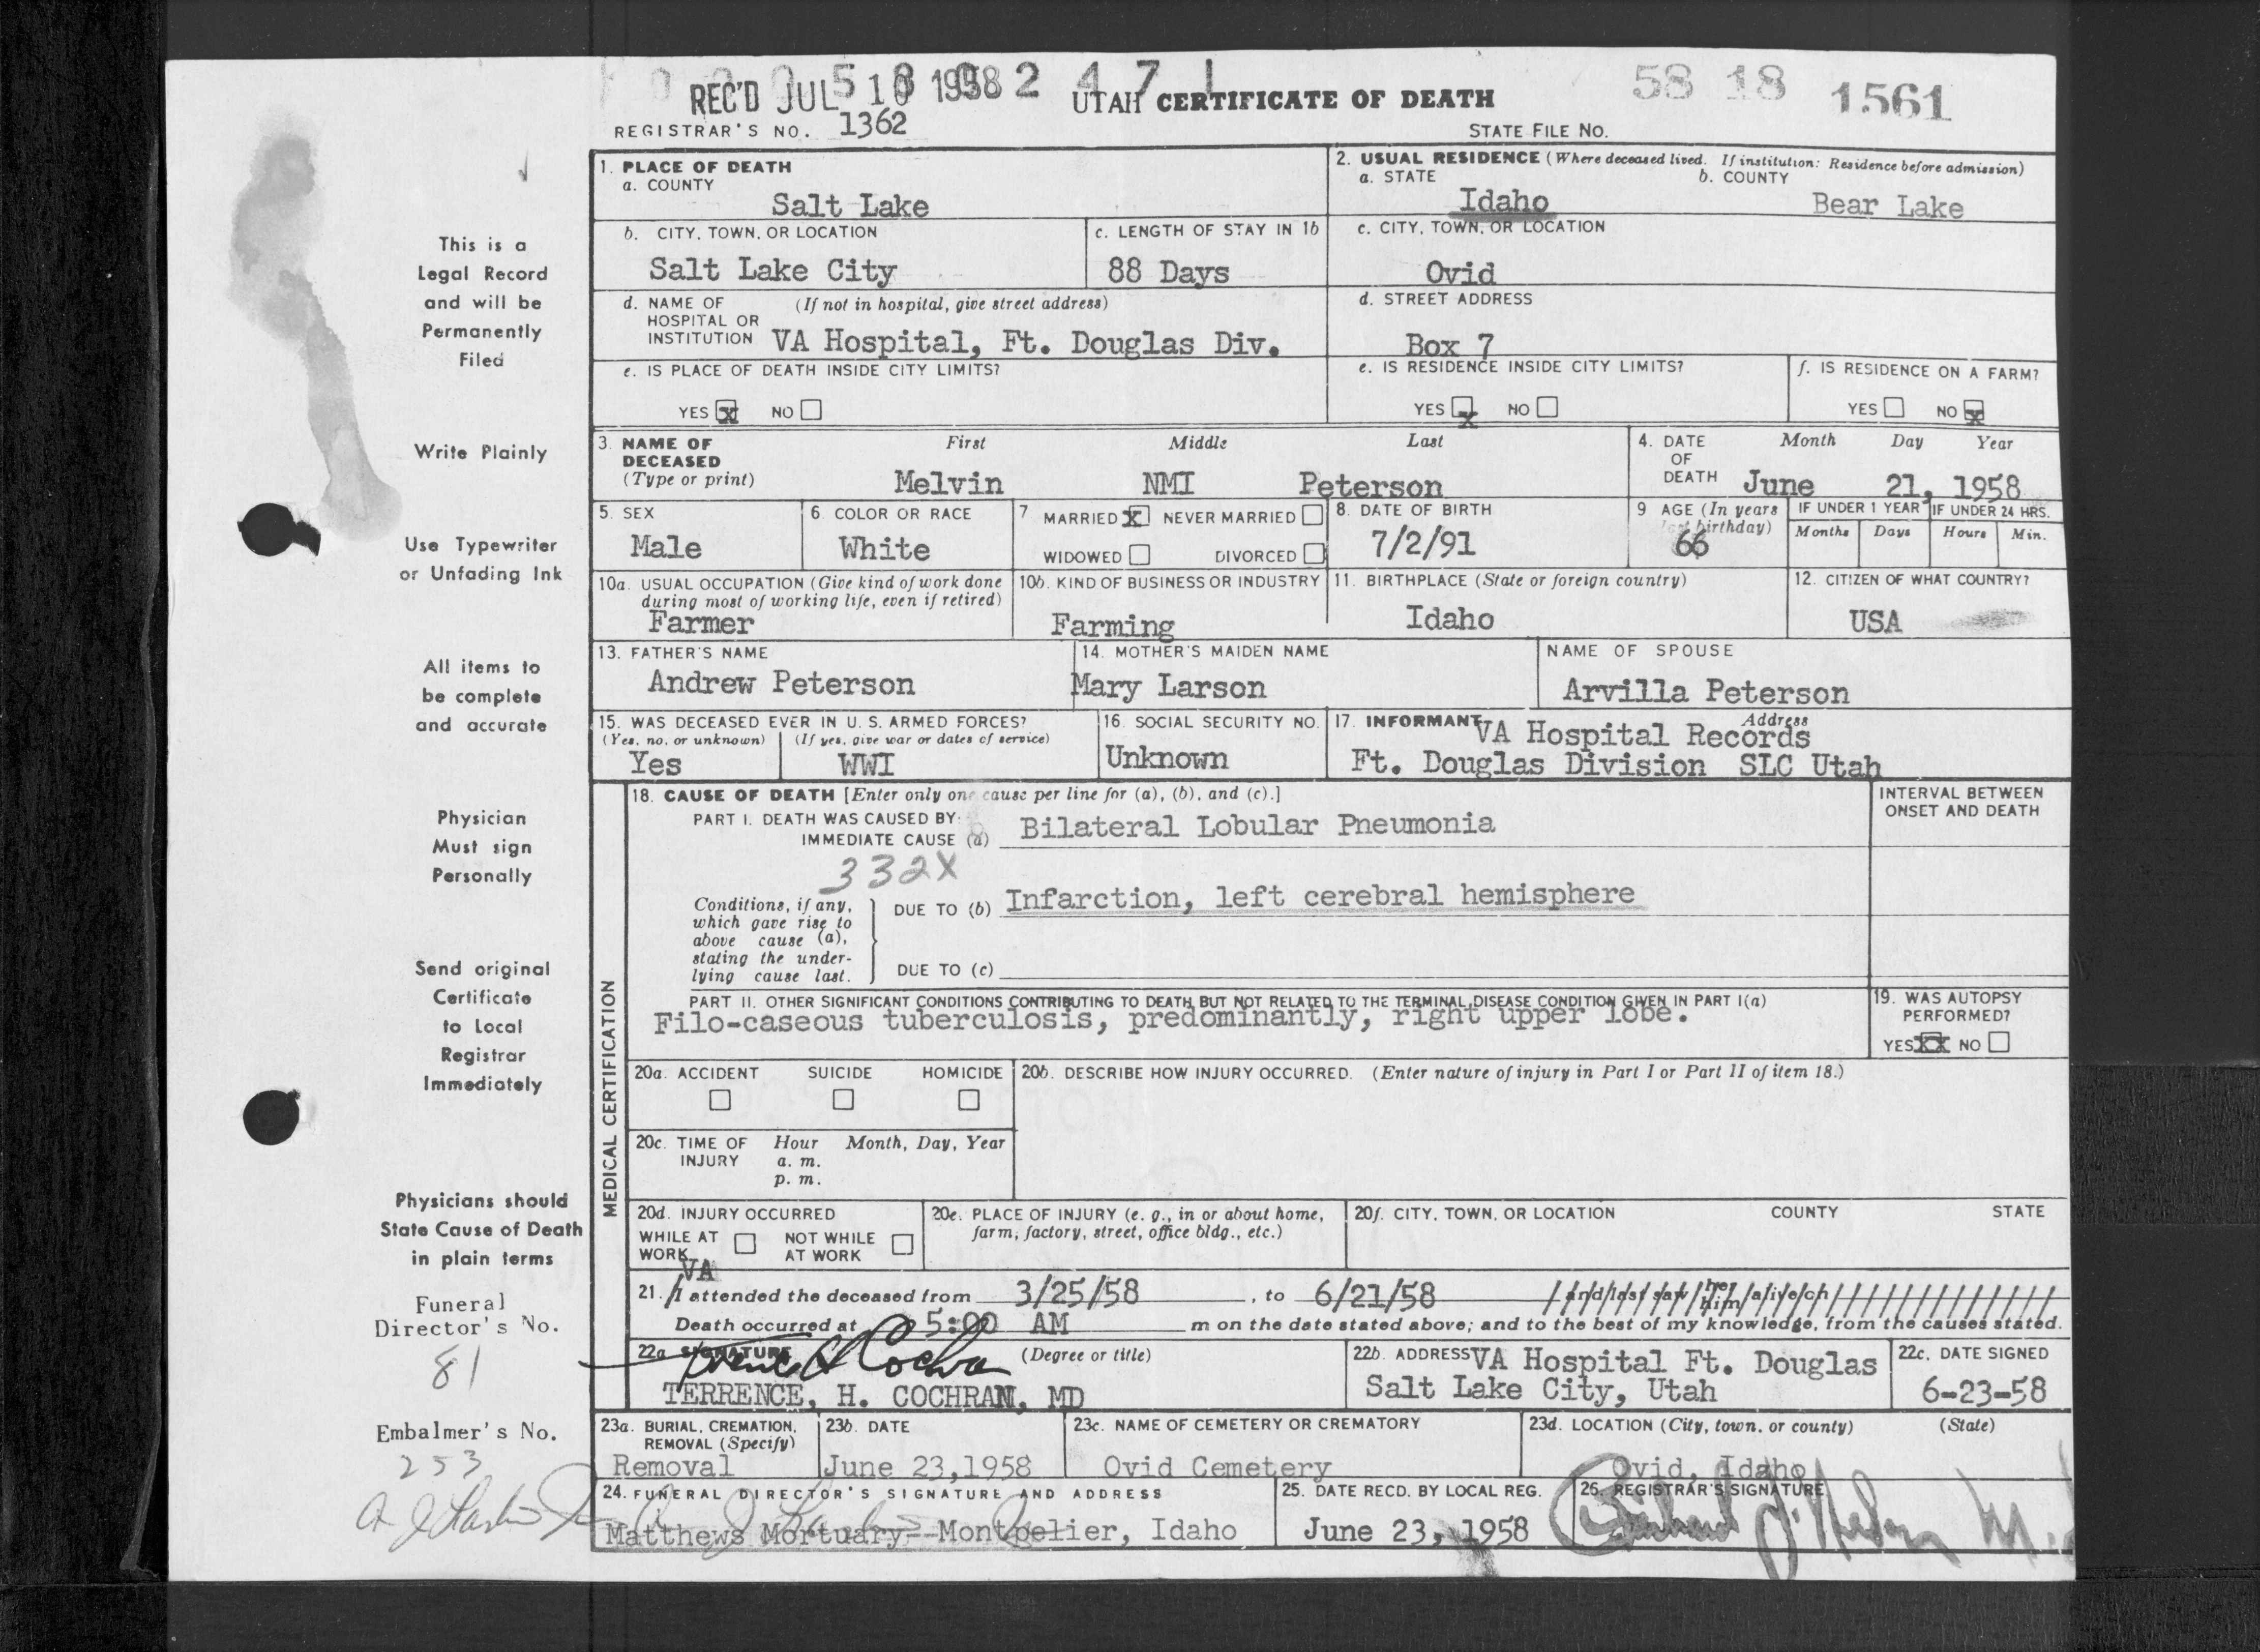 REC'D JUL 10 1958
UTAH CERTIFICATE OF DEATH
58 18 1561
REGISTRAR'S NO. 1362
STATE FILE NO.
1. PLACE OF DEATH
a. COUNTY
Salt Lake
2. USUAL RESIDENCE (Where deceased lived. If institution: Residence before admission)
a. STATE b. COUNTY
Idaho Bear Lake
b. CITY, TOWN, OR LOCATION
Salt Lake City
c. LENGTH OF STAY IN 1b
88 Days
c. CITY, TOWN, OR LOCATION
Ovid
d. NAME OF (If not in hospital, give street address)
HOSPITAL OR
INSTITUTION VA Hospital, Ft. Douglas Div.
d. STREET ADDRESS
Box 7
e. IS PLACE OF DEATH INSIDE CITY LIMITS?
YES X NO
e. IS RESIDENCE INSIDE CITY LIMITS?
YES X NO
f. IS RESIDENCE ON A FARM?
YES NO X
3. NAME OF
DECEASED
(Type or print)
First Middle Last
Melvin NMI Peterson
4. DATE
OF
DEATH
Month Day Year
June 21, 1958
5. SEX
Male
6. COLOR OR RACE
White
7. MARRIED X NEVER MARRIED
WIDOWED DIVORCED
8. DATE OF BIRTH
7/2/91
9. AGE (In years
last birthday)
66
IF UNDER 1 YEAR
Months Days
IF UNDER 24 HRS.
Hours Min.
10a. USUAL OCCUPATION (Give kind of work done
during most of working life, even if retired)
Farmer
10b. KIND OF BUSINESS OR INDUSTRY
Farming
11. BIRTHPLACE (State or foreign country)
Idaho
12. CITIZEN OF WHAT COUNTRY?
USA
13. FATHER'S NAME
Andrew Peterson
14. MOTHER'S MAIDEN NAME
Mary Larson
NAME OF SPOUSE
Arvilla Peterson
15. WAS DECEASED EVER IN U. S. ARMED FORCES?
(Yes, no, or unknown) (If yes, give war or dates of service)
Yes WWI
16. SOCIAL SECURITY NO.
Unknown
17. INFORMANT Address
VA Hospital Records
Ft. Douglas Division SLC Utah
MEDICAL CERTIFICATION
18. CAUSE OF DEATH [Enter only one cause per line for (a), (b), and (c).]
PART I. DEATH WAS CAUSED BY:
IMMEDIATE CAUSE (a) Bilateral Lobular Pneumonia
332X
Conditions, if any,
which gave rise to
above cause (a),
stating the under-
lying cause last.
DUE TO (b) Infarction, left cerebral hemisphere
DUE TO (c)
INTERVAL BETWEEN
ONSET AND DEATH
PART II. OTHER SIGNIFICANT CONDITIONS CONTRIBUTING TO DEATH BUT NOT RELATED TO THE TERMINAL DISEASE CONDITION GIVEN IN PART I(a)
Filo-caseous tuberculosis, predominantly, right upper lobe.
19. WAS AUTOPSY
PERFORMED?
YES XX NO
20a. ACCIDENT SUICIDE HOMICIDE
20b. DESCRIBE HOW INJURY OCCURRED. (Enter nature of injury in Part I or Part II of item 18.)
20c. TIME OF
INJURY
Hour Month, Day, Year
a. m.
p. m.
20d. INJURY OCCURRED
WHILE AT
WORK
NOT WHILE
AT WORK
20e. PLACE OF INJURY (e. g., in or about home,
farm, factory, street, office bldg., etc.)
20f. CITY, TOWN, OR LOCATION COUNTY STATE
VA
21. I attended the deceased from 3/25/58, to 6/21/58 and last saw her him alive on
Death occurred at 5:00 AM m on the date stated above; and to the best of my knowledge, from the causes stated.
22a. SIGNATURE (Degree or title)
TERRENCE, H. COCHRAN, MD
22b. ADDRESS VA Hospital Ft. Douglas
Salt Lake City, Utah
22c. DATE SIGNED
6-23-58
23a. BURIAL, CREMATION,
REMOVAL (Specify)
Removal
23b. DATE
June 23,1958
23c. NAME OF CEMETERY OR CREMATORY
Ovid Cemetery
23d. LOCATION (City, town, or county) (State)
Ovid, Idaho
24. FUNERAL DIRECTOR'S SIGNATURE AND ADDRESS
Matthews Mortuary--Montpelier, Idaho
25. DATE RECD. BY LOCAL REG.
June 23, 1958
26. REGISTRAR'S SIGNATURE
This is a
Legal Record
and will be
Permanently
Filed
Write Plainly
Use Typewriter
or Unfading Ink
All items to
be complete
and accurate
Physician
Must sign
Personally
Send original
Certificate
to Local
Registrar
Immediately
Physicians should
State Cause of Death
in plain terms
Funeral
Director's No.
81
Embalmer's No.
253